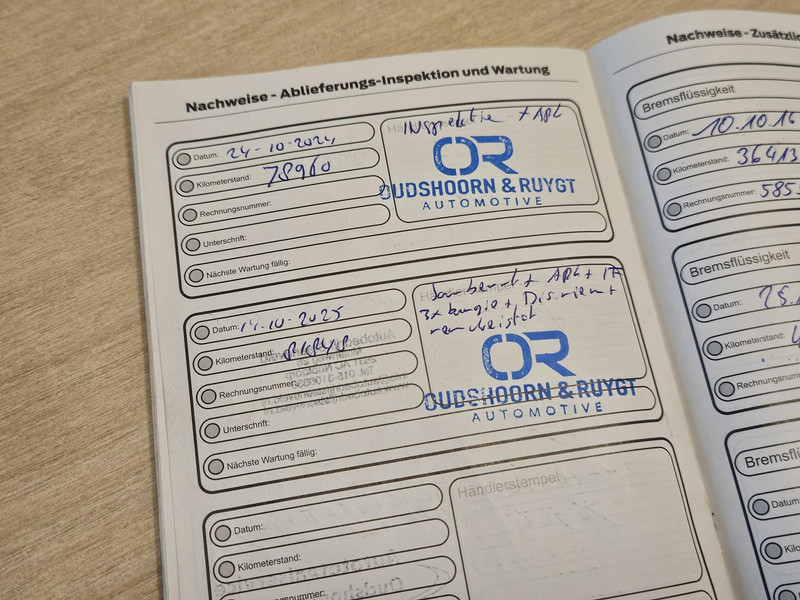 Nachweise - Ablieferungs-Inspektion und Wartung
Datum: 24-10-2024
Kilometerstand: 78960
Rechnungsnummer:
Unterschrift:
Nächste Wartung fällig:
Inspektie + APK
OR
OUDSHOORN & RUYGT
AUTOMOTIVE
Datum: 14-10-2025
Kilometerstand:
Rechnungsnummer:
Unterschrift:
Nächste Wartung fällig:
+ APK +
3x bougie + Dis.riem +
OR
OUDSHOORN & RUYGT
AUTOMOTIVE
Datum:
Kilometerstand:
Händlerstempel
Nachweise - Zusätzlic
Bremsflüssigkeit
Datum: 10.10.16
Kilometerstand: 36413
Rechnungsnummer: 585
Bremsflüssigkeit
Datum:
Kilometerstand:
Rechnungsnummer
Bremsflü
Datum:
Kilom